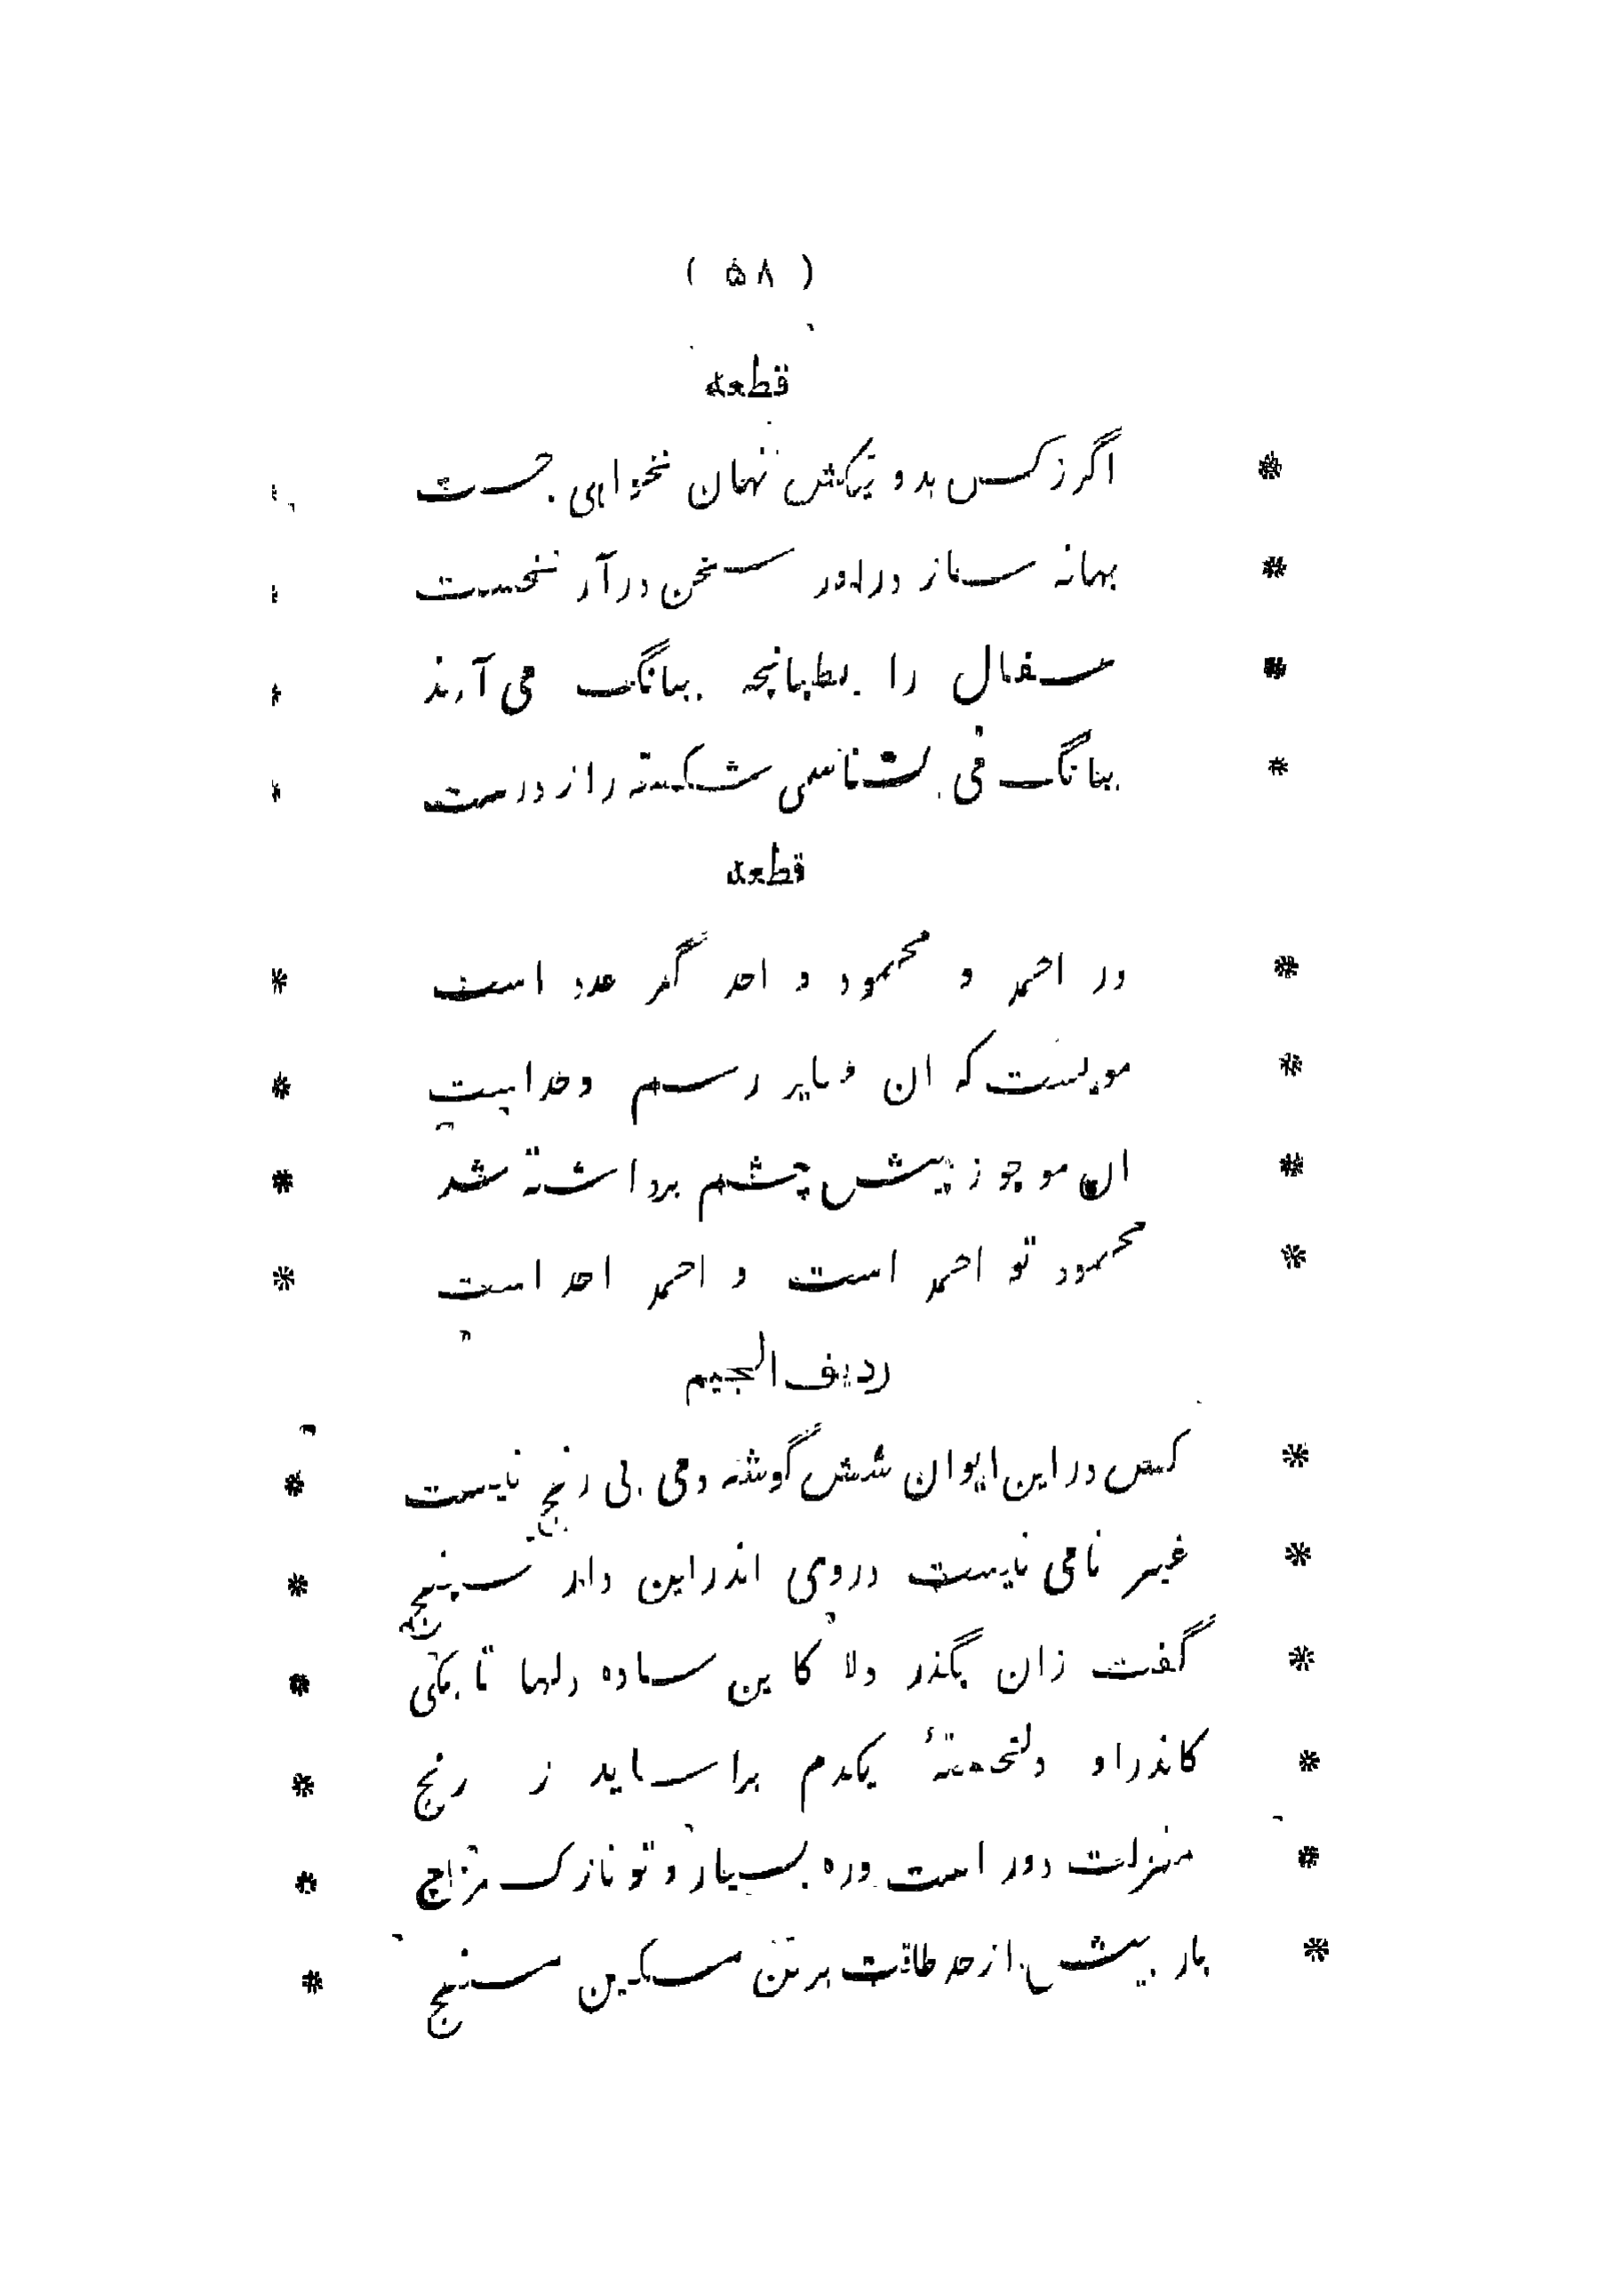 ( ۵۸ )
قطعه
* اگر ز کس بد و نیکش نهان نخواهی جست *
* بهانه ساز در امور سخن در آر نخست *
* سفال را بطپانچه ببانگ می آرند *
* ببانگ می بشناسی شکسته را ز درست *
قطعه
* در احمد و محمود و احد گر عدد است *
* مویست که ان رسم وخدایست *
* ان مو چو ز پیش چشم برداشته شد *
* محمود تو احمد است و احمد احد است *
ردیف الجیم
* کس در این ایوان شش گوشه دمی بی رنج نیست *
* غیر نامی نیست در وی اندراین دار سپنج *
* گفت زان بگذر دلا کاین ساده دلها تا بکی *
* کاندر او دلخستهٔ یکدم براساید ز رنج *
* منزلت دور است وره بسیار و تو نازک مزاج *
* بار بیش از حد طاقت بر تن مسکین مسنج *